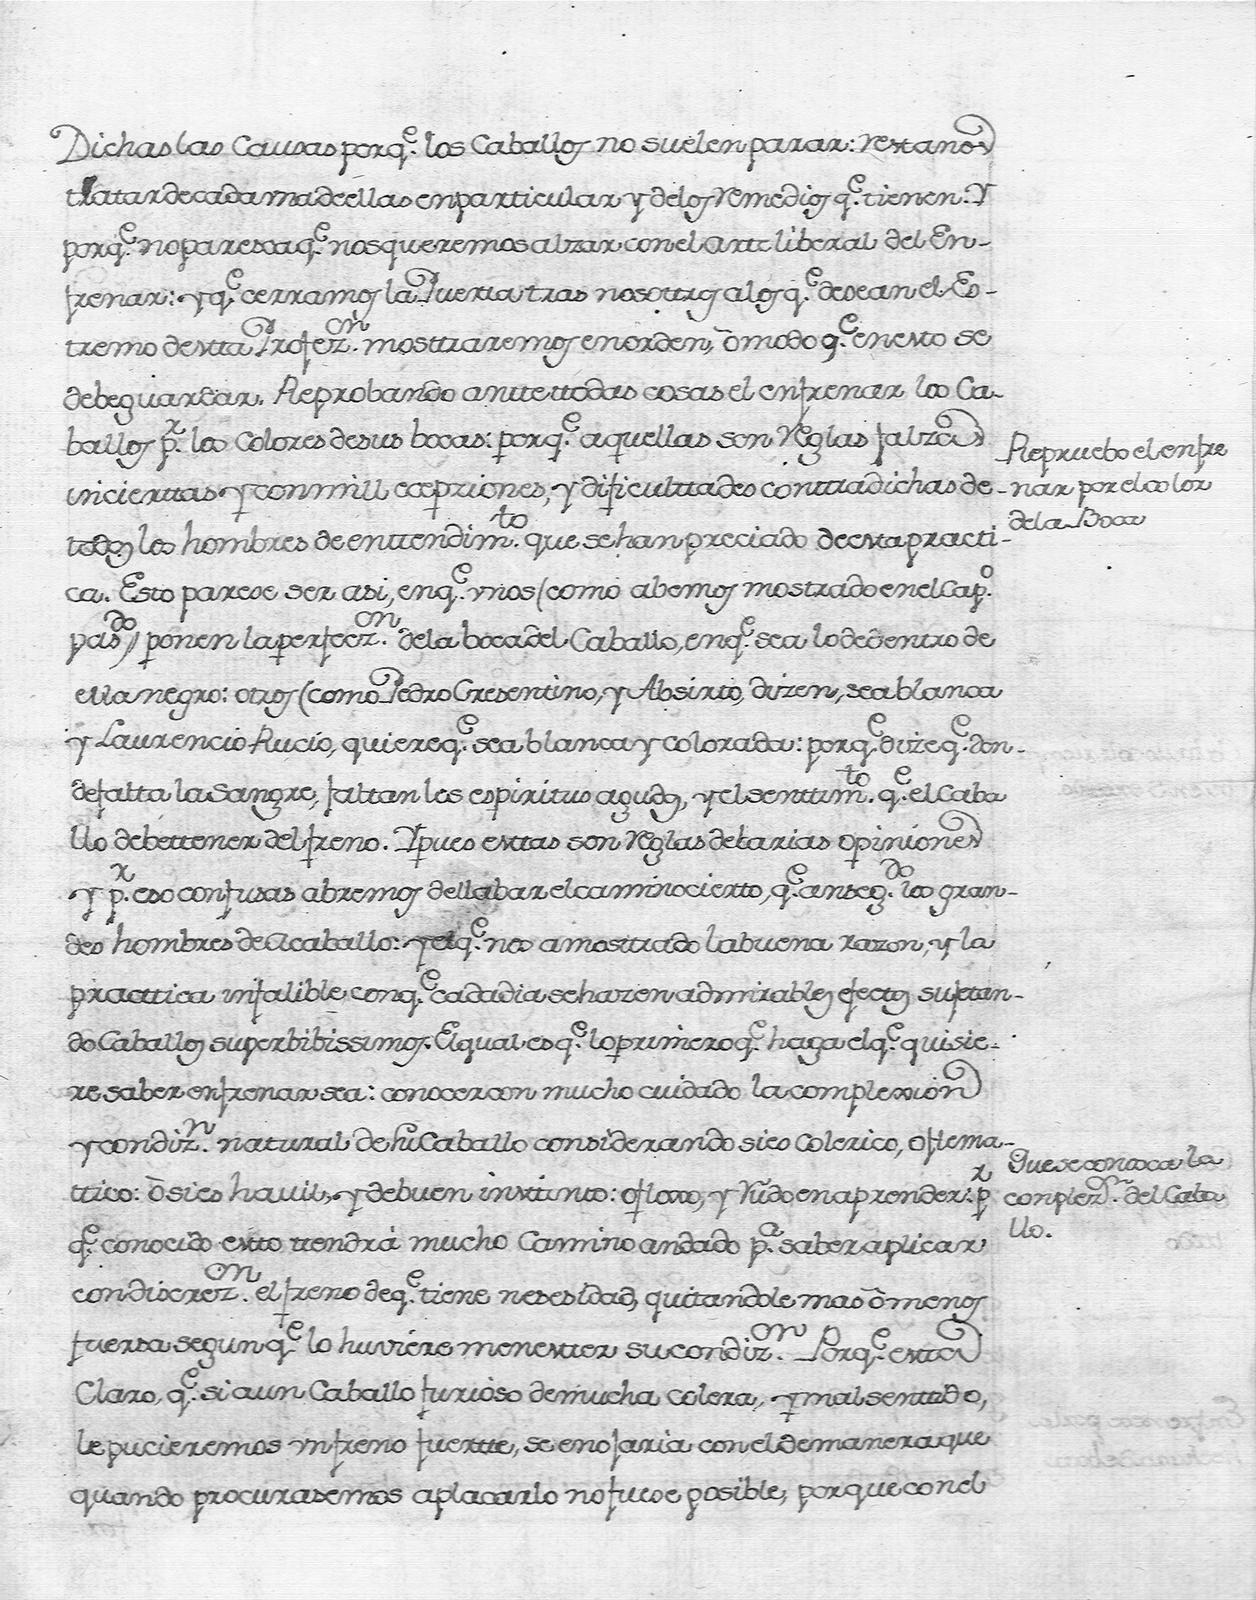 Dichas las Causas porq.e los Caballos no suelen parar: restanos
tratar de cada una de ellas en particular y de los remedios q.e tienen: Y
porq.e no paresca q.e nos queremos alzar con el arte liberal del En-
frenar: y q.e cerramos la Puerta tras nosottros a los q.e desean el Es-
tremo de estta Profez.on mosttraremos en orden, ò modo q.e en esto se
debe guardar. Reprobando antte ttodas cosas el enfrenar los Ca-
ballos p.r los Colores de sus bocas: porq.e aquellas son Reglas falzas
incierttas y con mill ecepziones, y dificulttades conttradichas de
todos los hombres de enttendim.to que se han preciado de esta practi-
ca. Esto parese ser asi, en q.e vnos (como abemos mostrado en el Cap.o
pas.do) ponen la perfecz.on de la boca del Caballo, en q.e sea lo de dentro de
ella negro: otros (como Pedro Cresentino, y Absirto, dizen, sea blanca
y Laurencio Rucio, quiere q.e sea blanca y colorada: porq.e dize q.e don-
de falta la Sangre, faltan los espiritus agudos, y el senttim.to q.e el Caba
llo debe ttener del freno. Y pues esttas son Reglas de barias opiniones
y p.r eso confusas abremos de llabar el camino cierto, q.e an seg.do los gran-
des hombres de acaballo: y el q.e nos a mosttrado la buena razon, y la
practtica infalible con q.e cada dia se hazen admirables efectos sujetan-
do Caballos superbibissimos. El qual es q.e lo primero q.e haga el q.e quisie-
re saber enfrenar sea: conocer con mucho cuidado la complexion
y condiz.n natural de su Caballo considerando si es Colerico, o flema-
ttico: ò si es havil, y de buen insttinto: o floxo, y rudo en aprender: p.r
q.e conocido estto ttendrà mucho Camino andado p.a saber aplicar
con discrez.on el freno de q.e tiene nesesidad, quitandole mas ò menos
fuersa segun q.e lo huviere menestter su condiz.on Porq.e estta
Claro, q.e si a un Caballo furioso de mucha colera, y mal senttido,
le pucieremos vn freno fuertte, se enojaria con el de manera que
quando procurasemos aplacarlo no fuese posible, porque con el
Repruebo el enfre
nar por el color
de la Boca
Que se conosca la
complez.on del Caba
llo.